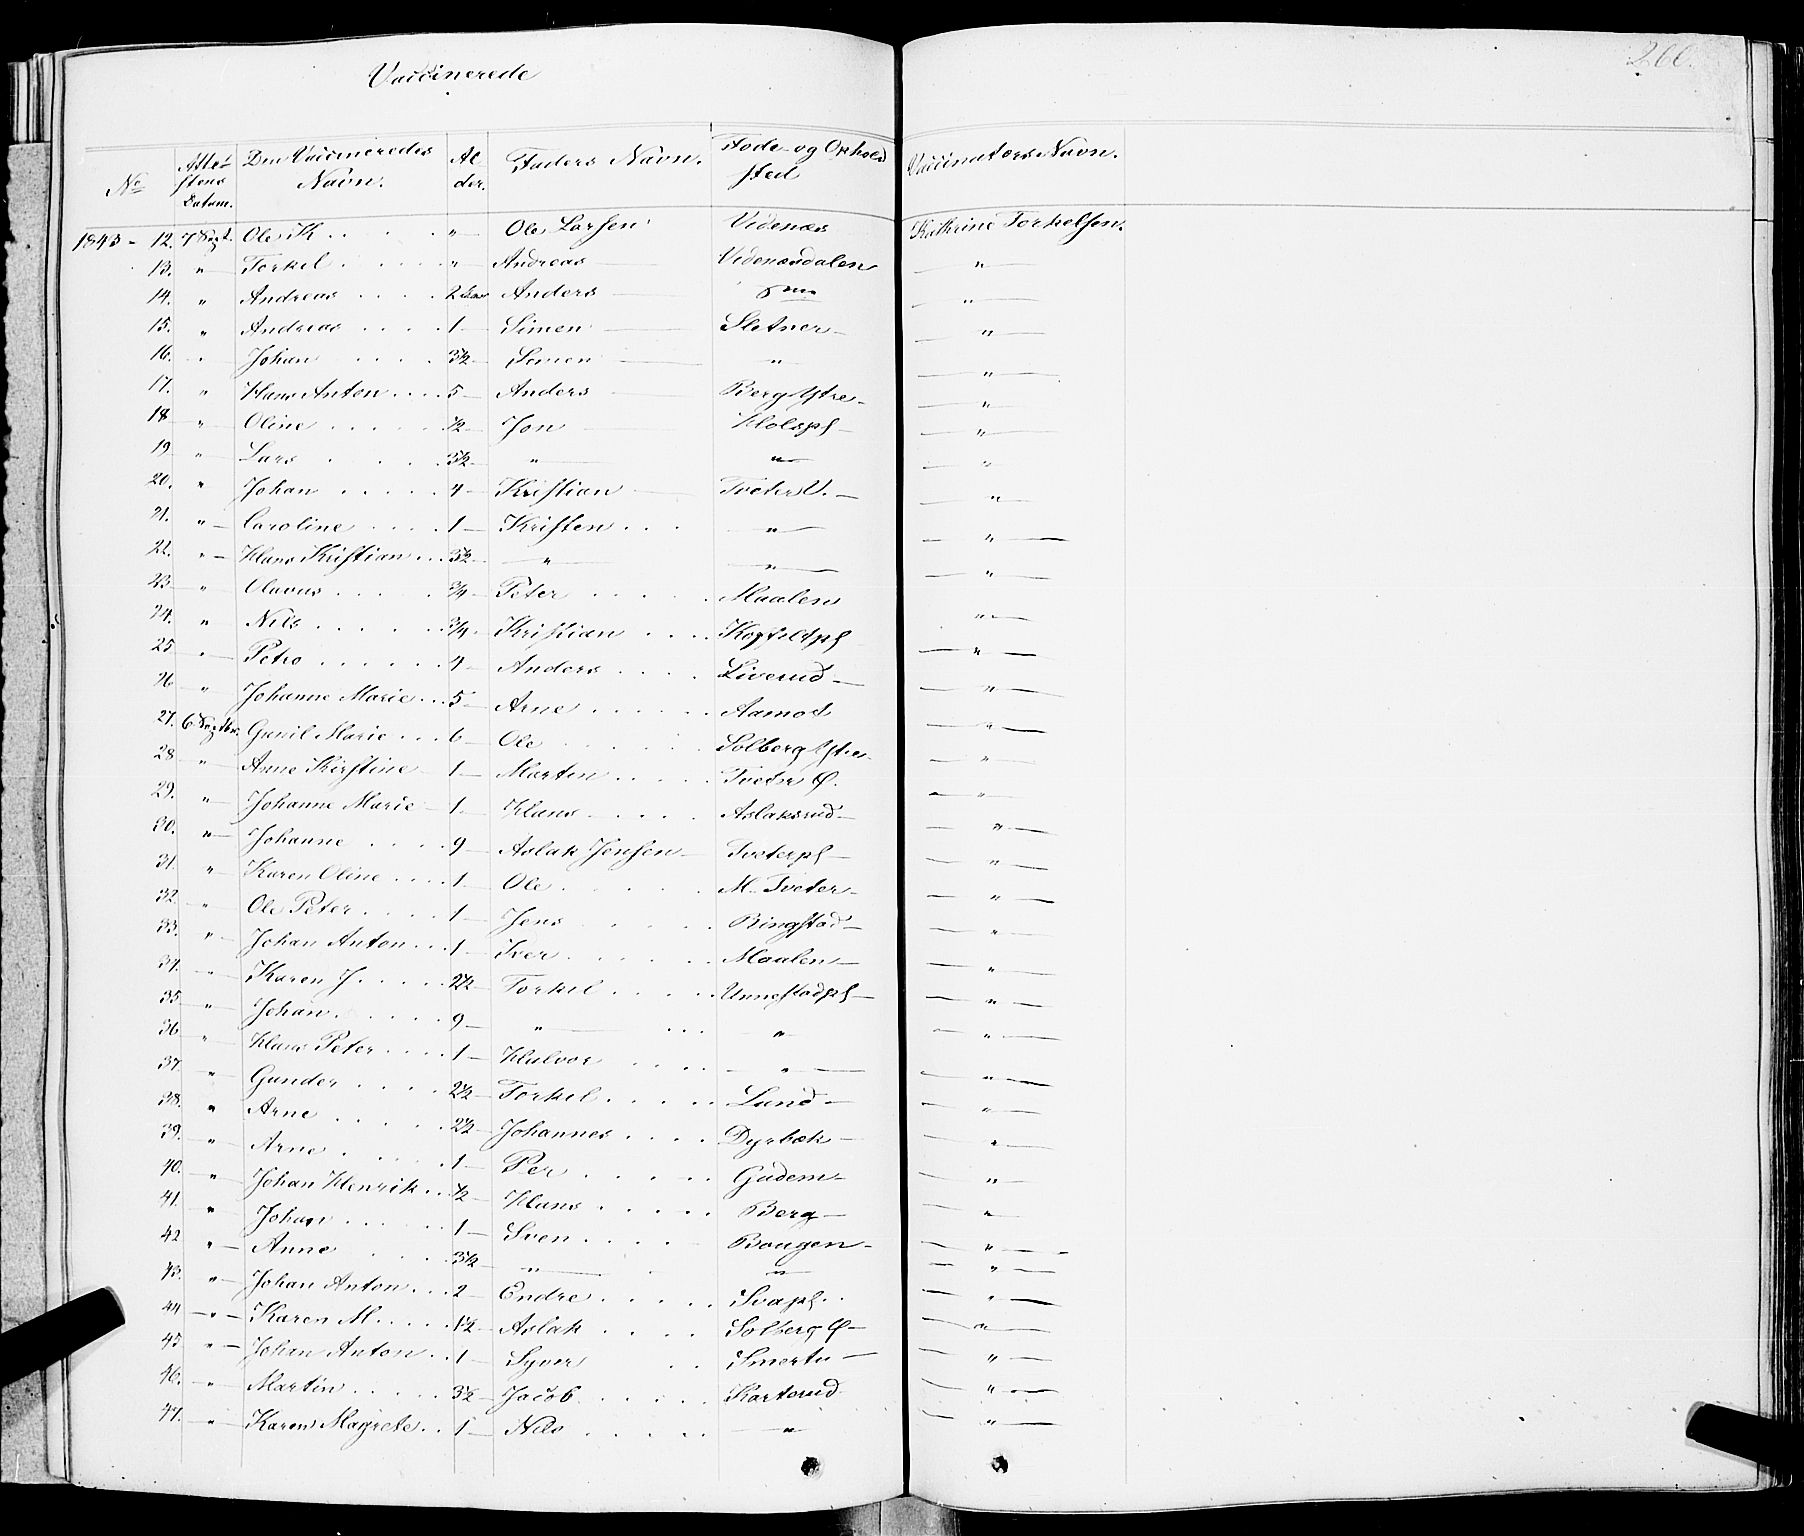 Vaccinerede
260.
No Attestens Datum. Den Vaccineredes Navn. Alder. Faders Navn. Føde- og Ophold sted Vaccinators Navn.
1843 - 12. 7 Sept. Ole K . . . " Ole Larsen Videnæs Kathrine Torkelsen.
13. " Torkel . . . " Andreas — Videnæsdalen — " —
14. " Andreas . . . 2 Anders — — " —
15. " Andreas . . . 1 — Simen — Sletner — — " —
16. " Johan . . . 3½ — Simen — " — " —
17. " Hans Anton . . . 5 — Anders — Berg Ystre — — " —
18 " — Oline . . . ½ — Jon — Holspl — — " —
19 " — Lars . . . 3½ — " — " — — " —
20. " Johan . . . 4 — Kristian — Tveter V. — — " —
21. " — Caroline . . . 1 — Kristen . . . — " — — " —
22. " — Hans Kristian . . 3½ — " — — " — — " —
23 — " — Olavus . . . ¾ — Peter . . . Maalen — " —
24. " Nils . . . ¾ — Kristian . . . — " —
25 " — Petro . . . 4 — Anders . . . Liverud — — " —
26 " — Johanne Marie . . . 5 — Arne . . . Aamot — " —
27. 6 Septbr. Gunil Marie . . . 6 — Ole . . . Solberg Ystre — — " —
28 " — Anne Kirstine — 1 — Marten . . . Tveter Ø. — " —
29. " — Johanne Marie — 1 — Hans — . . . Aslaksrud — — " —
30. " — Johanne . . . 9 — Aslak Jensen — Tveterpl — — " —
31. " — Karen Oline . . . 1 — Ole . . . M. Tveter — — " —
32. " — Ole Peter . . . 1 — Jens . . . Ringstad — — " —
33. " — Johan Anton . . . 1 — Iver . . . Maalen — — " —
34. " — Karen J. . . . 2½ — Torkel . . . Unnestadpl — — " —
35. " — Johan . . . 9 — " — . . . — " — — " —
36 " — Hans Peter . . . 1 — Halvor . . . — " — — " —
37 " — Gunder . . . 2½ — Torkel . . . Lund — — " —
38. " — Arne . . . 2½ — Johannes . . . Dyrbæk — — " —
39. " — Arne . . . 1 — Per . . . Gudem — — " —
40. " — Johan Henrik . . ½ — Hans . . . Berg — — " —
41. " — Johan . . . 1 — Sven . . . Bougen — — " —
42 " — Anne . . . 3½ — " — " — " —
43. " — Johan Anton . . . 2 — Endre . . . Svapl . . — " —
44 — " — Karen M. . . . 1½ — Aslak . . . Solberg Ø — — " —
45 " — Johan Anton . . 1 — Syver . . Smertu — — " —
46. " — Martin . . . 3½ — Jacob . . . Kartorud — " —
47. " — Karen Magrete . . 1 — Nils . . . — " — — " —